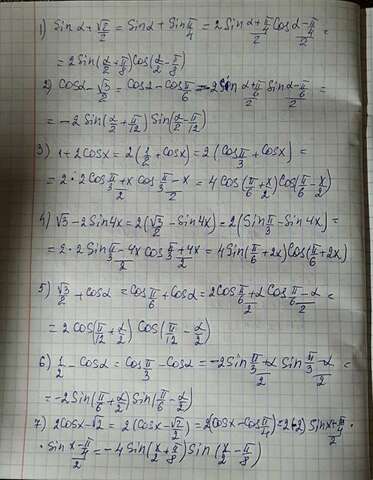 1) Sin α + √2/2 = Sin α + Sin π/4 = 2 Sin (α + π/4)/2 Cos (α - π/4)/2 =
= 2 Sin (α/2 + π/8) Cos (α/2 - π/8)
2) Cos α - √3/2 = Cos α - Cos π/6 = -2 Sin (α + π/6)/2 Sin (α - π/6)/2 =
= -2 Sin (α/2 + π/12) Sin (α/2 - π/12)
3) 1 + 2 Cos x = 2 (1/2 + Cos x) = 2 (Cos π/3 + Cos x) =
= 2 · 2 Cos (π/3 + x)/2 Cos (π/3 - x)/2 = 4 Cos (π/6 + x/2) Cos (π/6 - x/2)
4) √3 - 2 Sin 4x = 2 (√3/2 - Sin 4x) = 2 (Sin π/3 - Sin 4x) =
= 2 · 2 Sin (π/3 - 4x)/2 Cos (π/3 + 4x)/2 = 4 Sin (π/6 + 2x) Cos (π/6 + 2x)
5) √3/2 + Cos α = Cos π/6 + Cos α = 2 Cos (π/6 + α)/2 Cos (π/6 - α)/2 =
= 2 Cos (π/12 + α/2) Cos (π/12 - α/2)
6) 1/2 - Cos α = Cos π/3 - Cos α = -2 Sin (π/3 + α)/2 Sin (π/3 - α)/2 =
= -2 Sin (π/6 + α/2) Sin (π/6 - α/2)
7) 2 Cos x - √2 = 2 (Cos x - √2/2) = 2 (Cos x - Cos π/4) = 2(-2) Sin (x + π/4)/2 ·
· Sin (x - π/4)/2 = -4 Sin (x/2 + π/8) Sin (x/2 - π/8)